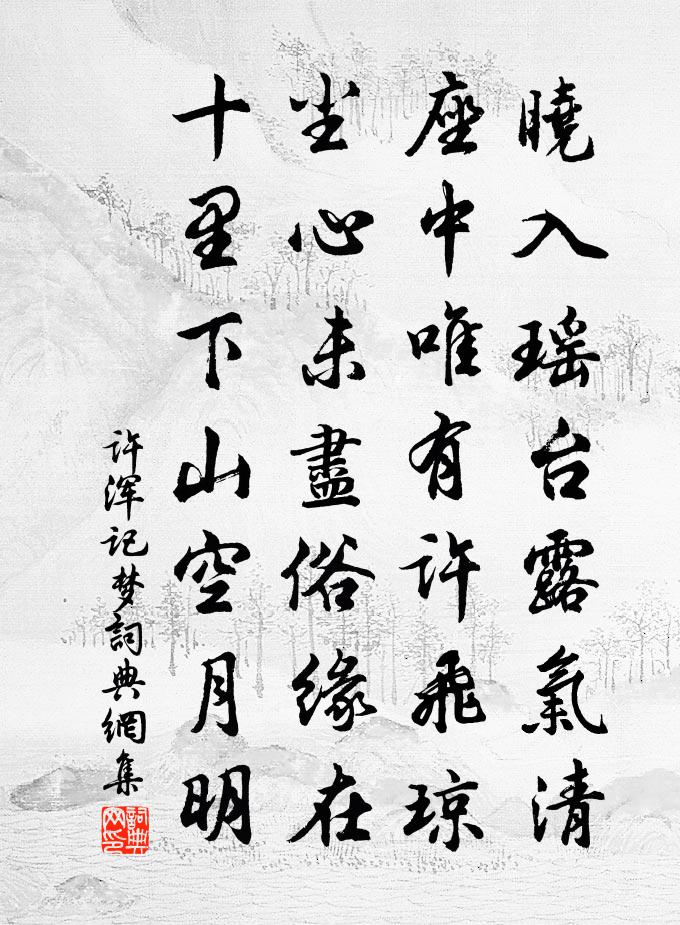 曉入瑶台露氣清
座中唯有许飛琼
尘心未盡俗緣在
十里下山空月明
许浑记梦詞典網集
詞典网印